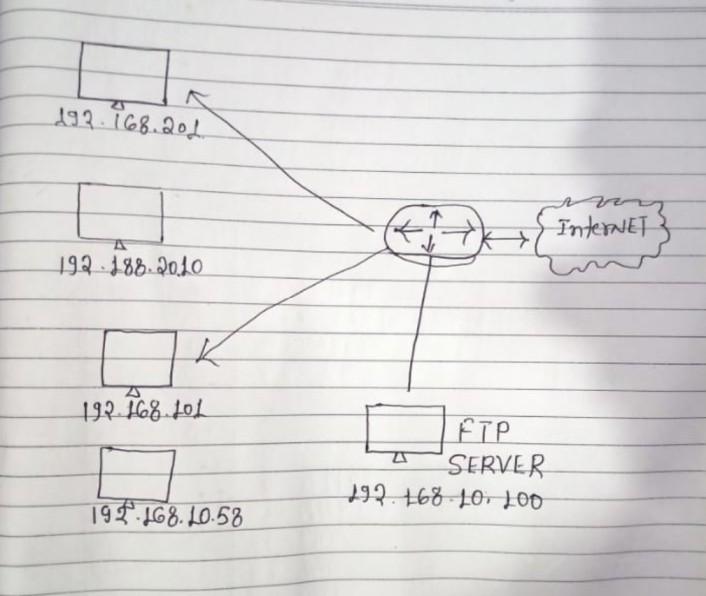 192.168.201
192.188.2010
192.168.101
192.168.10.58
InterNET
FTP
SERVER
192.168.10.100